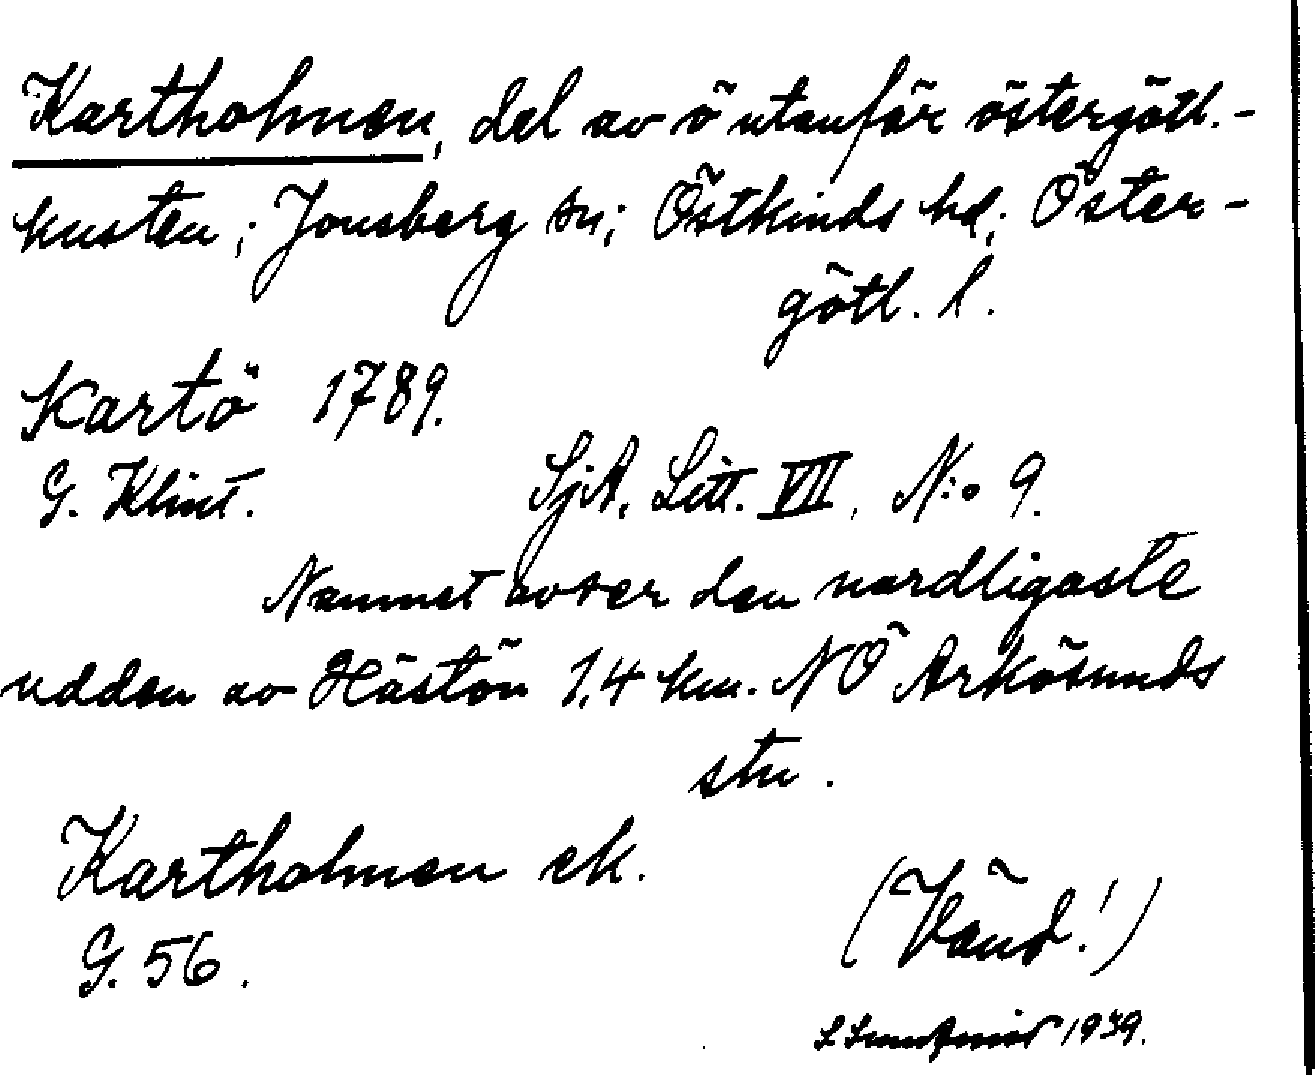 Kartholmen, del av ö utanför östergötl.-
kusten; Jonsberg sn; Östkinds hd; Öster-
götl. l.
Kartö 1789.
G. Klint. SjA, Litt. VII, N:o 9.
Namnet avser den nordligaste
udden av Hästön 1,4 km. NÖ Arkösunds
stn.
Kartholmen ek.
G. 56.
(Vänd!)
1939.